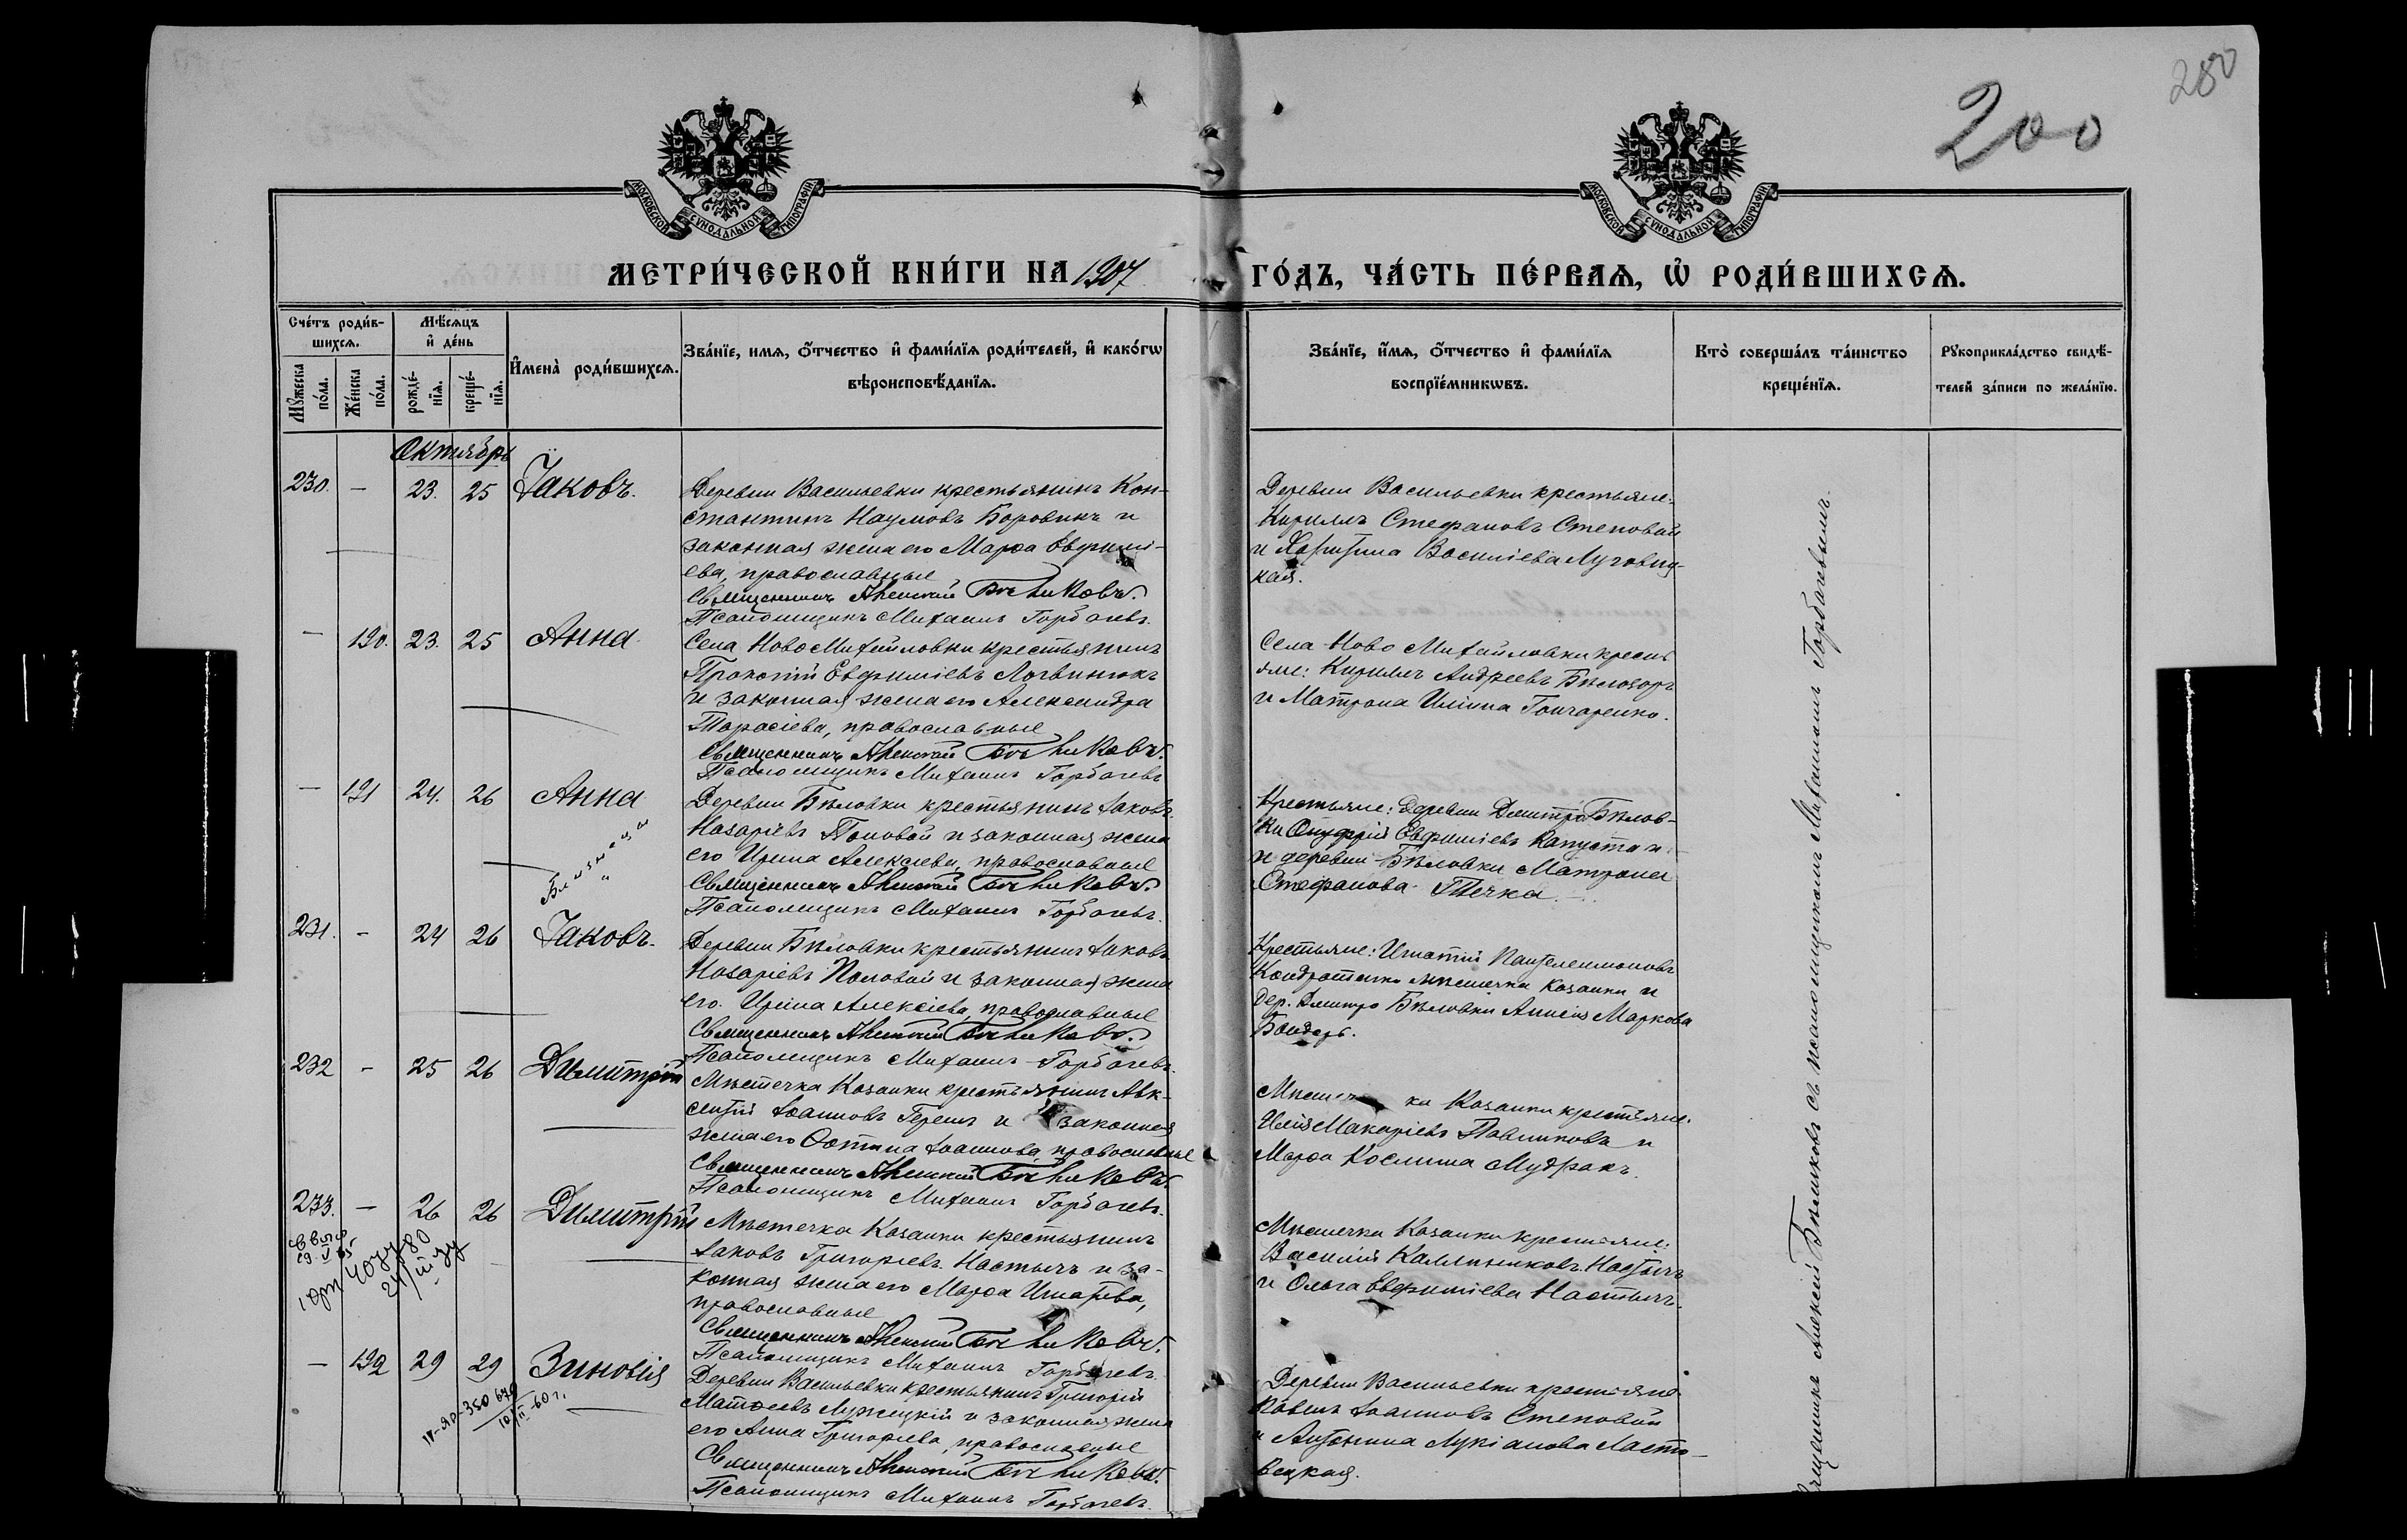 280
200
МОСКОВСКОЙ СѴНОДАЛЬНОЙ ТИПОГРАФІИ
МОСКОВСКОЙ СѴНОДАЛЬНОЙ ТИПОГРАФІИ
МЕТРИ́ЧЕСКОЙ КНИ́ГИ НА 1907
ГО́ДЪ, ЧА́СТЬ ПЕ́РВАѦ, Ѡ҆ РОДИ́ВШИХСѦ.
Сче́тъ роди́в-
шихсѧ.
Мꙋ́жеска по́ла.
Же́нска по́ла.
Мѣ́сѧцъ
и҆ де́нь
рожде́-
нїѧ.
креще́-
нїѧ.
И҆мена̀ роди́вшихсѧ.
Зва́нїе, имѧ, ѻ҆́тчество и҆ фами́лїѧ роди́телей, и҆ како́гѡ
вѣроисповѣ́данїѧ.
Зва́нїе, и҆́мѧ, ѻ҆́тчество и҆ фами́лїѧ
воспрїе́мникѡвъ.
Кто̀ соверша́лъ та́инство
креще́нїѧ.
Рꙋкоприкла́дство свидѣ́-
телей за́писи по жела́нїю.
Октябрь
230. — 23. 25 Іаковъ.
Деревни Васильевки крестьянинъ Кон-
стантинъ Наумовъ Боровикъ и
законная жена его Марѳа Евѳимі-
ева, православные
Священникъ Алексій Бѣликовъ.
Псаломщикъ Михаилъ Горбачевъ.
Деревни Васильевки крестьяне:
Кириллъ Стефановъ Степовой
и Харитина Василіева Луговиц-
кая.
— 190. 23. 25 Анна
Села Ново Михайловки крестьянинъ
Прокопій Евфиміевъ Логвинюкъ
и законная жена его Александра
Тарасіева, православные
Священникъ Алексій Бѣликовъ.
Псаломщикъ Михаилъ Горбачевъ
Села Ново Михайловки кресть
яне: Кириллъ Андреевъ Бѣлозоръ
и Матрона Иліина Гончаренко.
— 191 24. 26 Анна
Близнецы
Деревни Бѣловки крестьянинъ Іаковъ
Назаріевъ Половой и законная жена
его Ирина Алексіева, православные
Священникъ Алексій Бѣликовъ.
Псаломщикъ Михаилъ Горбачевъ.
Крестьяне: Деревни Дмитро Бѣлов-
ки Онуфрій Евфиміевъ Капуста и
и деревни Бѣловки Матрона
Стефанова Течка.
231. - 24 26 Іаковъ.
Деревни Бѣловки крестьянинъ Іаковъ
Назаріевъ Половой и законная жена
его Ирина Алексіева, православные
Священникъ Алексій Бѣликовъ.
Псаломщикъ Михаилъ Горбачевъ.
Крестьяне: Игнатій Пантелеимоновъ
Кондратенко мѣстечка Казанки и
дер. Дмитро Бѣловки Анисія Маркова
Бондарь.
232 - 25 26 Димитрій
Мѣстечка Казанки крестьянинъ Авк-
сентій Іоанновъ Герешъ и законная
жена его Іоаннова, православные
Священникъ Алексій Бѣликовъ.
Псаломщикъ Михаилъ Горбачевъ.
Мѣстеч ки Казанки крестьяне.
Илія Макаріевъ Павликовъ и
Марѳа Космина Мудракъ.
233. — 26 26 Димитрій
Мѣстечка Казанки крестьянинъ
Іаковъ Григоріевъ Настычъ и за-
конная жена его Марѳа Игнатіева,
православные
Священникъ Алексій Бѣликовъ.
Псаломщикъ Михаилъ Горбачевъ.
Мѣстечка Казанки крестьяне:
Василій Каллиниковъ Настычъ
и Ольга Евфиміева Настычъ.
— 192 29 29 Зиновія
Деревни Васильевки крестьянинъ Григорій
Матѳеевъ Лужецкій и законная жена
его Анна Григоріева, православные
Священникъ Алексій Бѣликовъ.
Псаломщикъ Михаилъ Горбачевъ.
Деревни Васильевки крестьяне
Павелъ Іоанновъ Степовой
и Антонина Лукіанова Ласто-
вецкая.
Священникъ Алексій Бѣликовъ съ псаломщикомъ Михаиломъ Горбачевымъ.